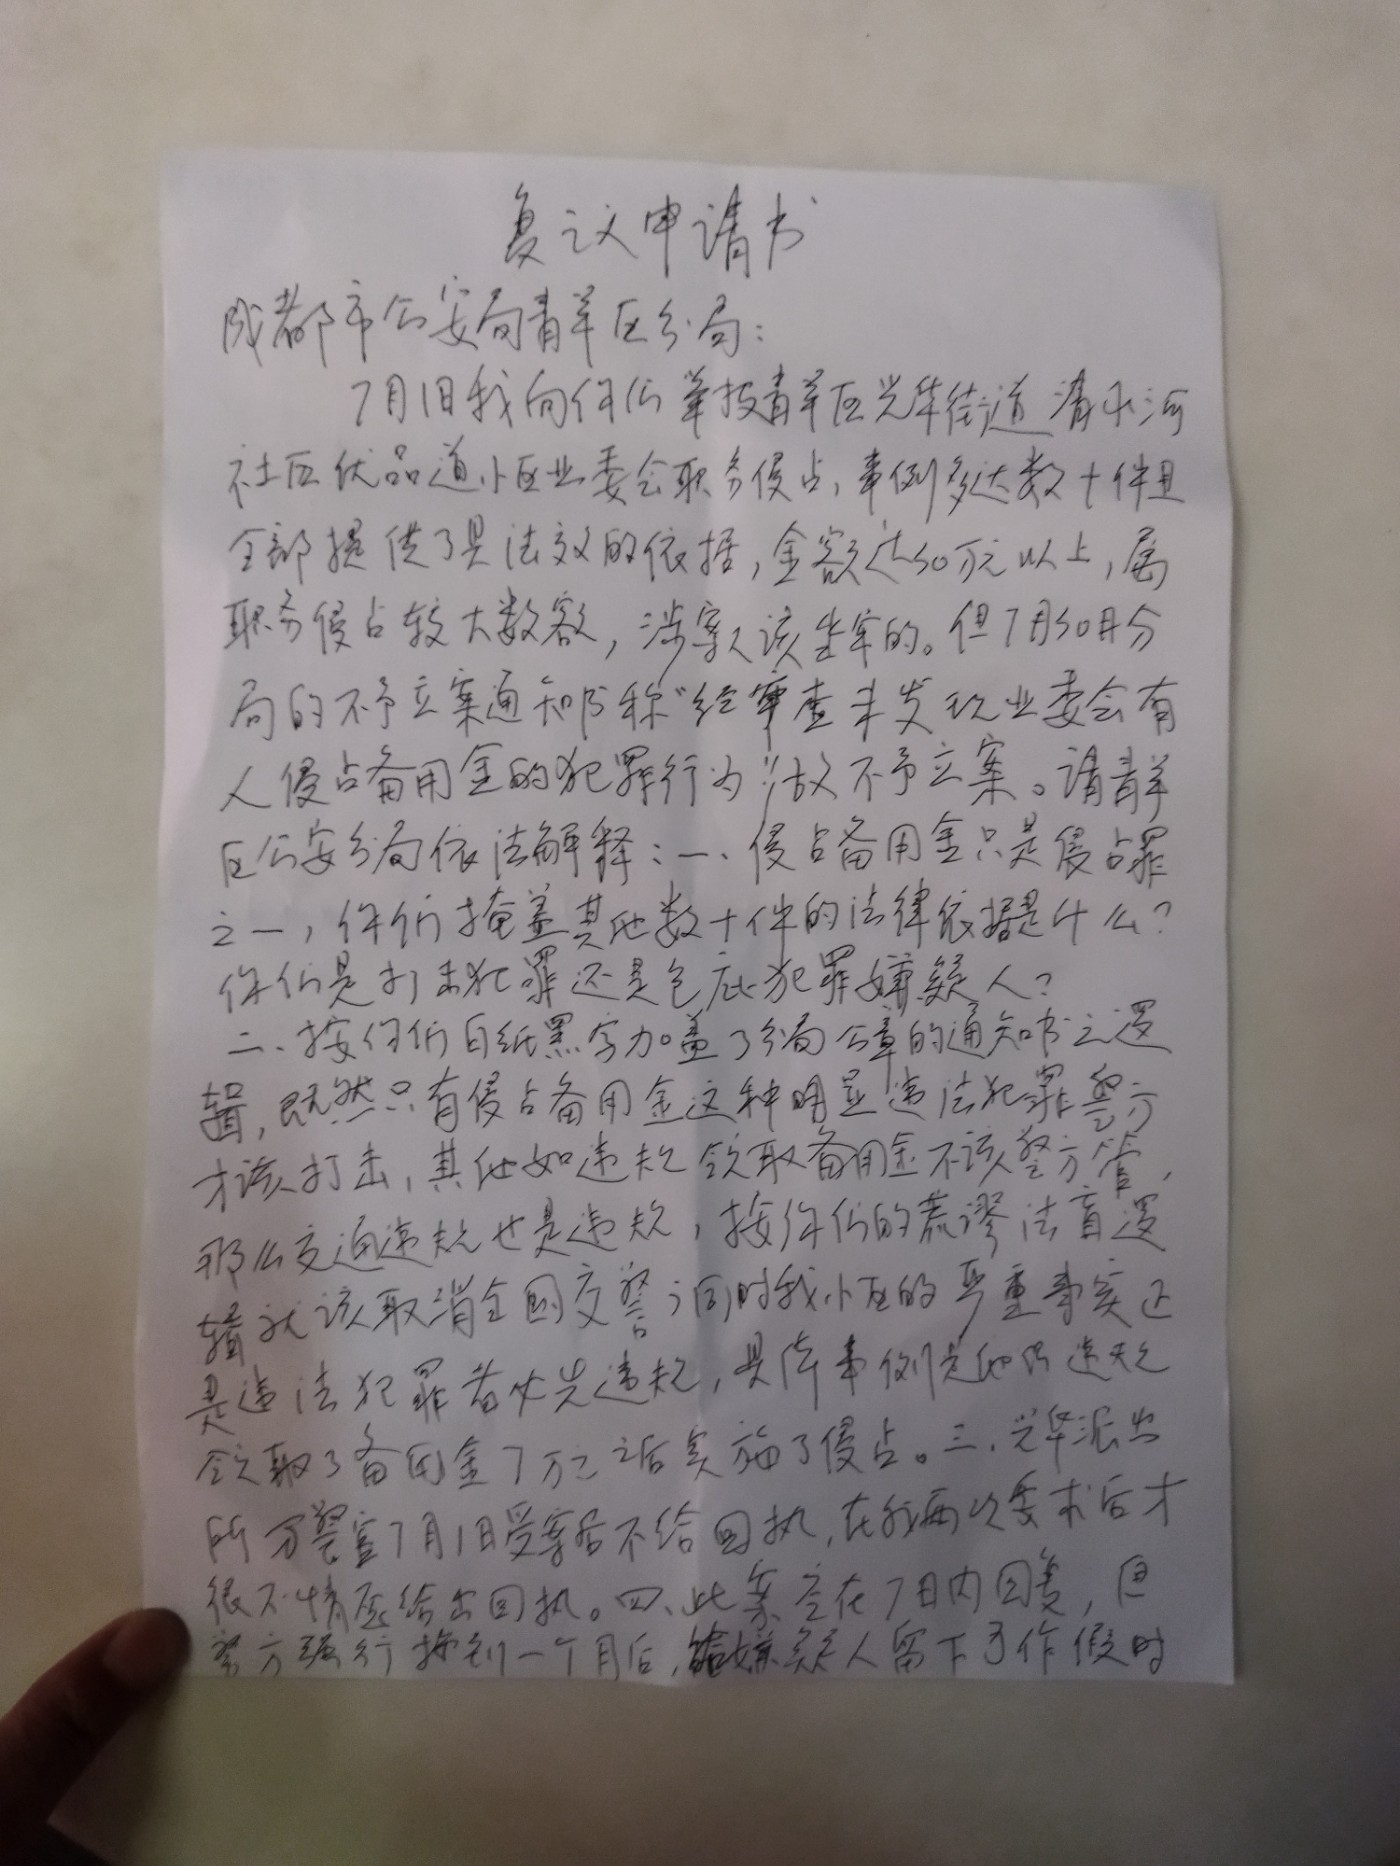 复议申请书
成都市公安局青羊区分局：
7月1日我向你们举报青羊区光华街道清水河
社区优品道小区业委会职务侵占，事例多达数十件且
全部提供了具法效的依据，金额达50万元以上，属
职务侵占较大数额，涉案人该坐牢的。但7月30日分
局的不予立案通知书称“经审查未发现业委会有
人侵占备用金的犯罪行为”故不予立案。请青羊
区公安分局依法解释：一、侵占备用金只是侵占罪
之一，你们掩盖其他数十件的法律依据是什么？
你们是打击犯罪还是包庇犯罪嫌疑人？
二、按你们白纸黑字加盖了分局公章的通知书之逻
辑，既然只有侵占备用金这种明显违法犯罪警方
才该打击，其他如违规领取备用金不该警方管，
那么交通违规也是违规，按你们的荒谬法盲逻
辑就该取消全国交警；同时我小区的严重事实正
是违法犯罪者必先违规，具体事例是他们违规
领取了备用金7万之后实施了侵占。三、光华派出
所万警官7月1日受案后不给回执，在我两次要求后才
很不情愿给出回执。四、此案应在7日内回复，但
警方强行拖到一个月后，给嫌疑人留下了作假时